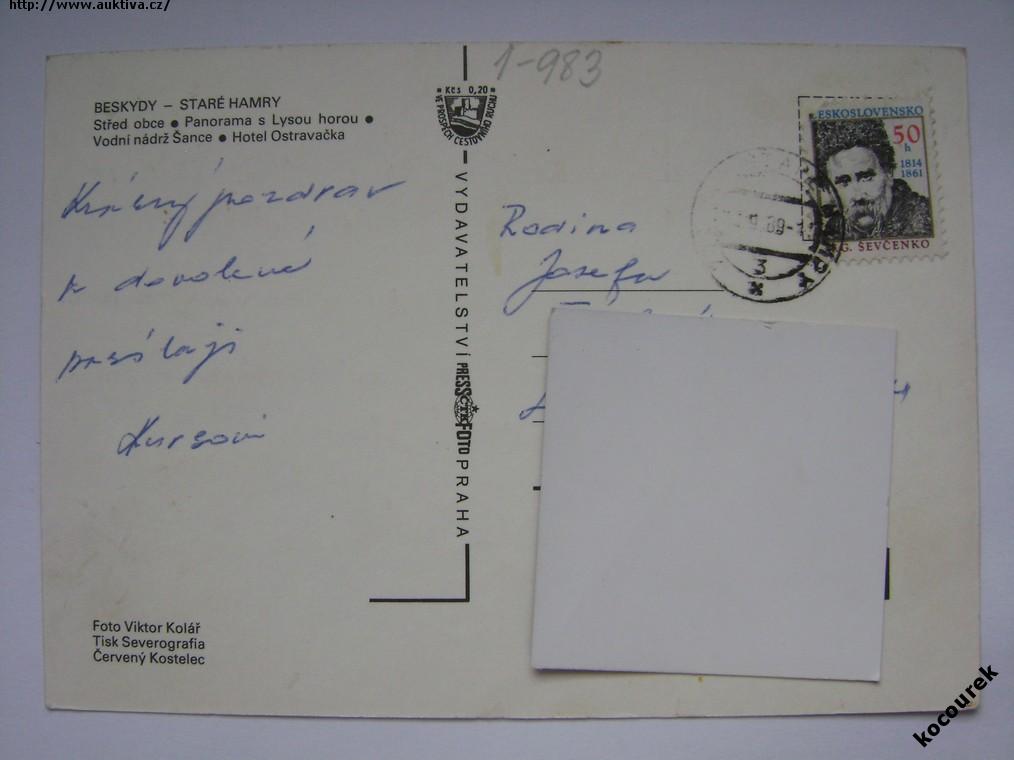 http://www.auktiva.cz/
1-983
BESKYDY – STARÉ HAMRY
Střed obce ● Panorama s Lysou horou ●
Vodní nádrž Šance ● Hotel Ostravačka
Krásný pozdrav
z dovolené
posílají
Kčs 0,20
VE PROSPĚCH CESTOVNÍHO RUCHU
VYDAVATELSTVÍ PRESSFOTO PRAHA
ČTK
ESKOSLOVENSKO
50
h
1814
1861
G. ŠEVČENKO
89-
3
Rodina
Josefa
Foto Viktor Kolář
Tisk Severografia
Červený Kostelec
kocourek